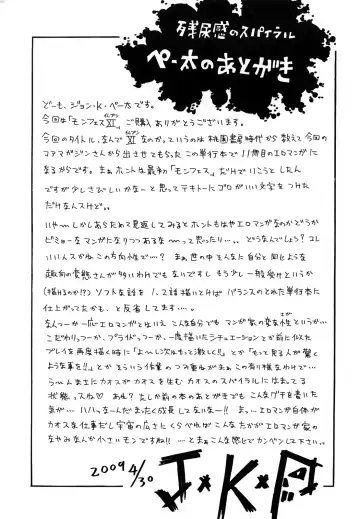 残尿感のスパイラル
ペー太のあとがき
どーも、ジョン・K・ペー太です。
今回は「モンフェスXI」ご購入ありがとうございます。
イレブン
今回のタイトル、なんでXIなのかっていうのは桃園書房時代から数えて今回の
コアマガジンさんから出させてもらったこの単行本で11冊目のエロマンガに
なるからです。まぁホントは最初「モンフェス」だけでいこうとしたん
ですが少しさびしいかなーと思ってテキトーにゴロがいい文字をつけた
だけなんスけど。。
いや〜しかしあらためて見返してみるとホントもはやエロマンガなのかどうか
ビミョーなマンガになりつつあるな〜って思ったり…。どうなんでしょう?コレ
いいんスかねこの方向性で…?まぁ世の中そんな自分と同じような
趣向の変態さんが多いわけでもないですし、もう少し一般受けというか
(描けるのか!?)ソフトな話を1、2話描いとけばバランスのとれた単行本に
仕上がってたかも、と反省してます…。
なんつーか一応エロマンガとはいえこんな自分でもマンガ家の変な性というか…
こだわりっつーか、プライドっつーか、一度描いたシチュエーションとか前に似た
プレイを再度描く時に「よーし次はもっと激しく!!」とか「もっと見る人が驚く
ような事を!!」とかまぁそういう作業のつみ重ねがまぁこの有り様なわけで…
う〜んまさにカオスがカオスを生むカオスのスパイラルにはまってる
状態っスね♡ あれ?たしか前の本のあとがきでもこんなグチを書いた
気が…ハハッなーんだまったく成長してないなー!!まっ…エロマンガ自体が
カオスな仕事だし宇宙の広さにくらべればこんなたかがエロマンガ家の
なやみなんか小さいモンですね!!…とまぁこんな感じでカンベンして下さい。。
2009 4/30
J×K×P